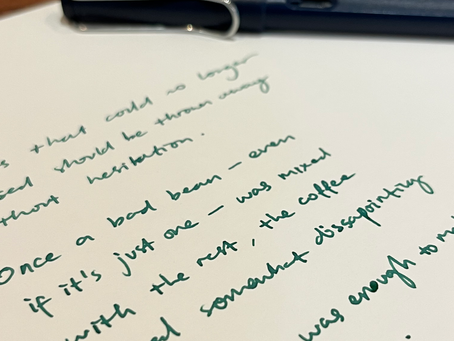 that could no longer
should be thrown away
without hesitation.
Once a bad bean – even
if it's just one – was mixed
with the rest, the coffee
somewhat dissapointing
was enough to